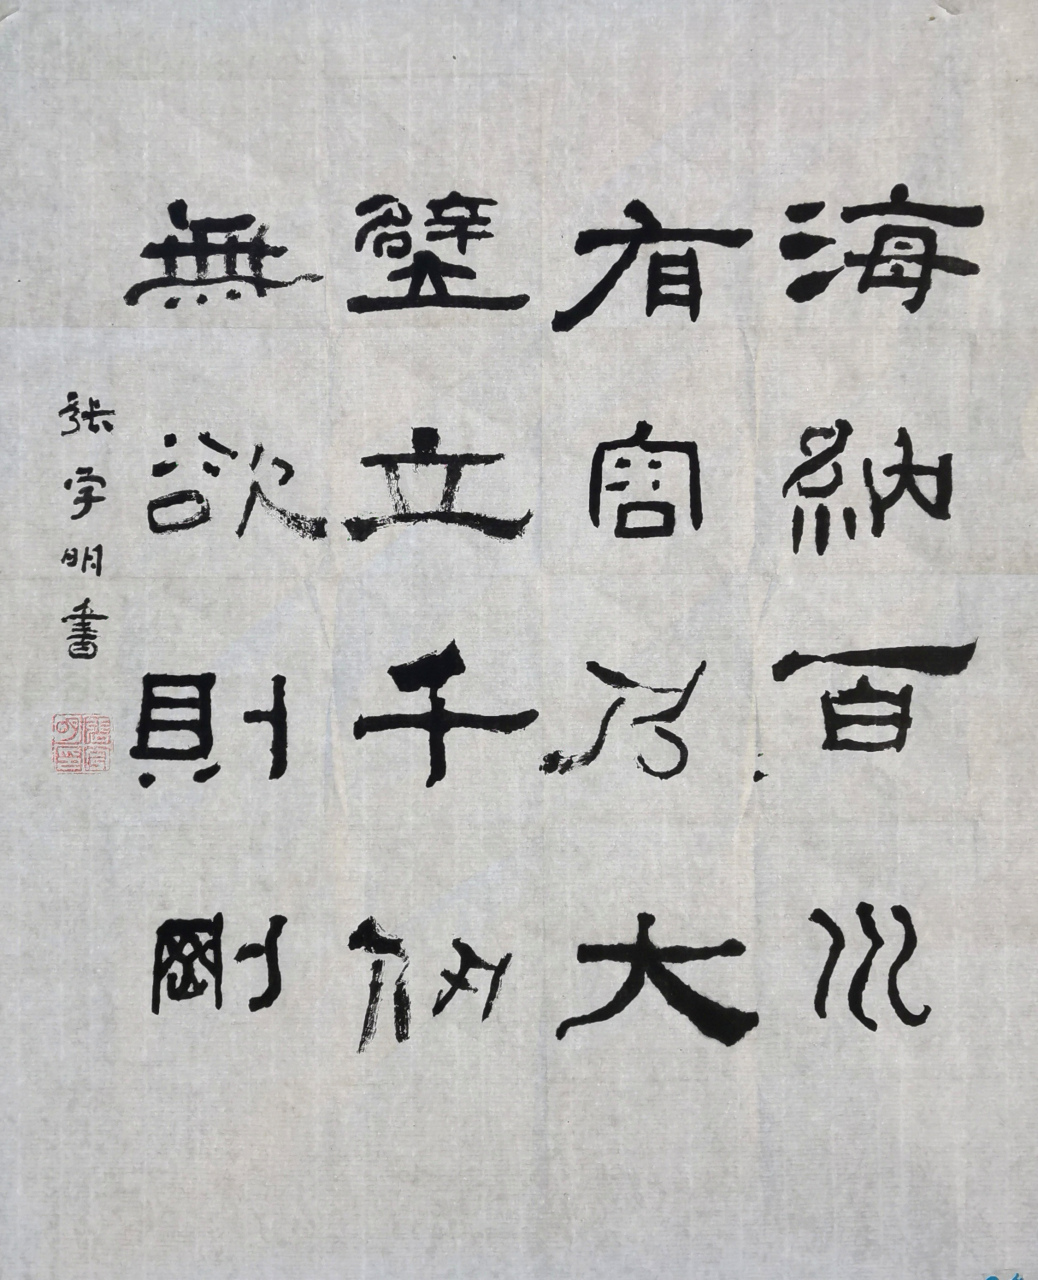 海納百川
有容乃大
壁立千仞
無欲則剛
張學明書